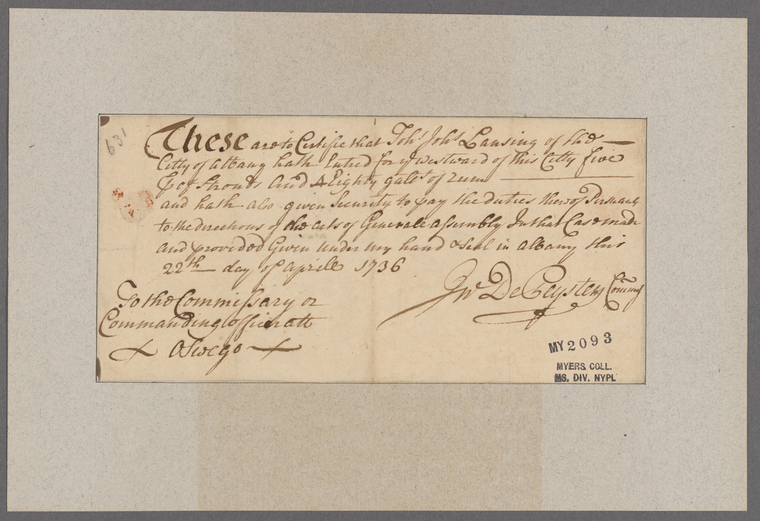 631
These are to Certifie that Joh.s Joh.s Lansing of the
Citty of Albany hath Entred for ye westward of this Citty five
ps of Strouds And Eighty gals of rum
and hath also given Security to pay the duties thereof Persuant
to the directions of the acts of Generall assembly In that Case made
and provided Given under my hand & Seal in Albany this
22th day of Aprill 1736
Jno De Peyster Commy
To the Commissary or
Commanding officer att
Oswego
MY 2093
MYERS COLL.
MS. DIV. NYPL